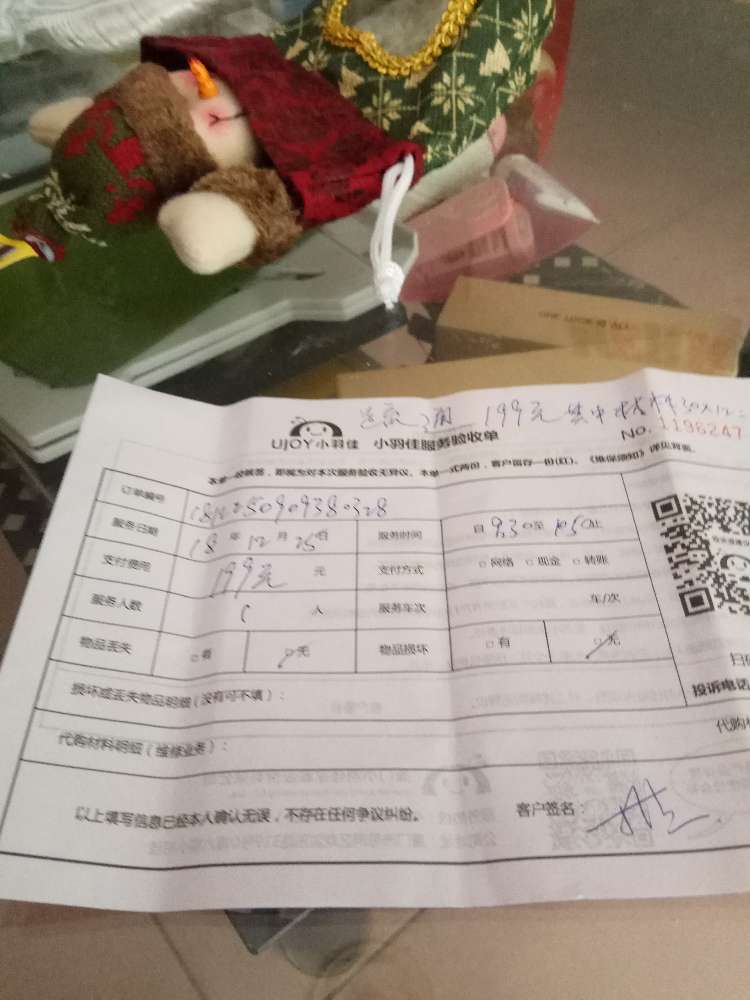 199元 其中材料30人工
UJOY小羽佳 小羽佳服务验收单 NO.1196247
本单一经被签，即视为对本次服务验收无异议。本单一式两份，客户留存一份(红)。《维保须知》详见背面。
订单编号
服务日期 18年12月25日 服务时间 自 9:30至10:50止
支付费用 199元 元 支付方式 □网络 □现金 □转账
服务人数 1 人 服务车次 车/次
物品丢失 □有 □无 物品损坏 □有 □无
损坏或丢失物品明细（没有可不填）：
投诉电话
代购材料明细（维修业务）：
代购
以上填写信息已经本人确认无误，不存在任何争议纠纷。 客户签名：